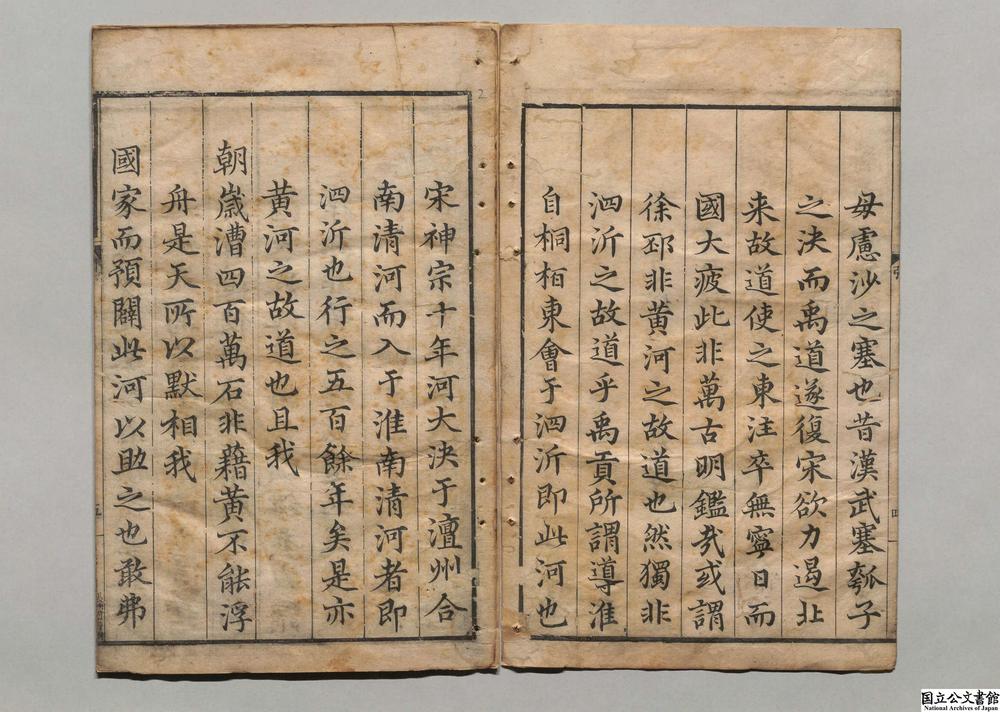 毋慮沙之塞也昔漢武塞瓠子
之決而禹道遂復宋欲力遏北
来故道使之東注卒無寧日而
國大疲此非萬古明鑑㢤或謂
徐邳非黄河之故道也然獨非
泗沂之故道乎禹貢所謂導淮
自桐栢東會于泗沂即此河也
四
宋神宗十年河大決于澶州合
南清河而入于淮南清河者即
泗沂也行之五百餘年矣是亦
黄河之故道也且我
朝歳漕四百萬石非藉黄不能浮
舟是天所以默相我
國家而預闢此河以助之也敢弗
五
2
国立公文書館
National Archives of Japan